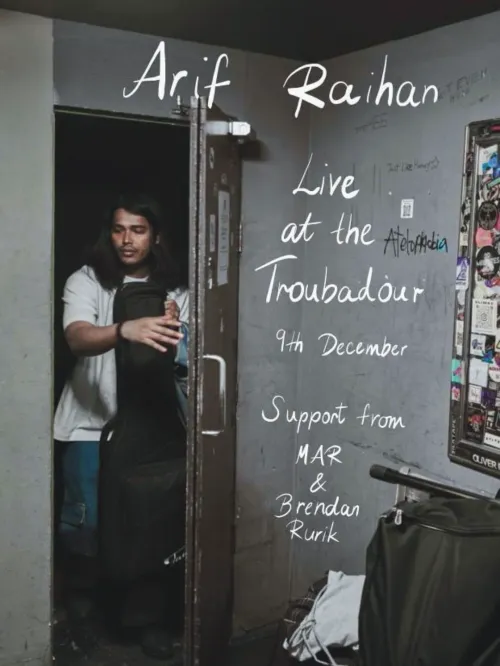 Arif Raihan
Live
at the
Troubadour
9th December
Support from
MAR
&
Brendan
Rurik
Atelophobia
OLIVER